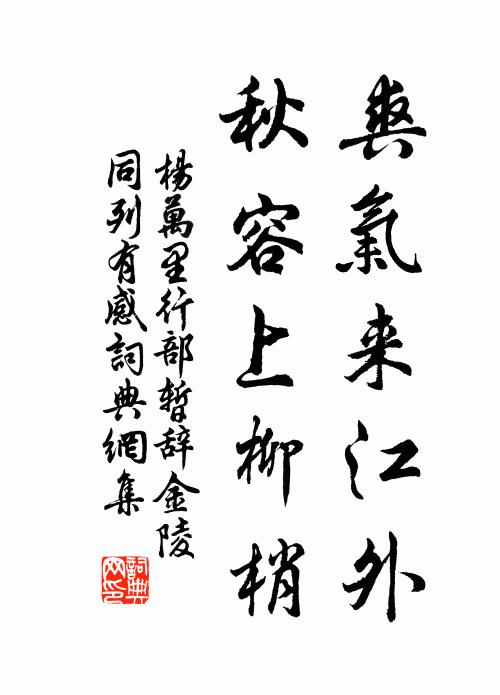 爽氣来江外
秋容上柳梢
楊萬里行部暫辞金陵
同列有感詞典網集
詞典
网印